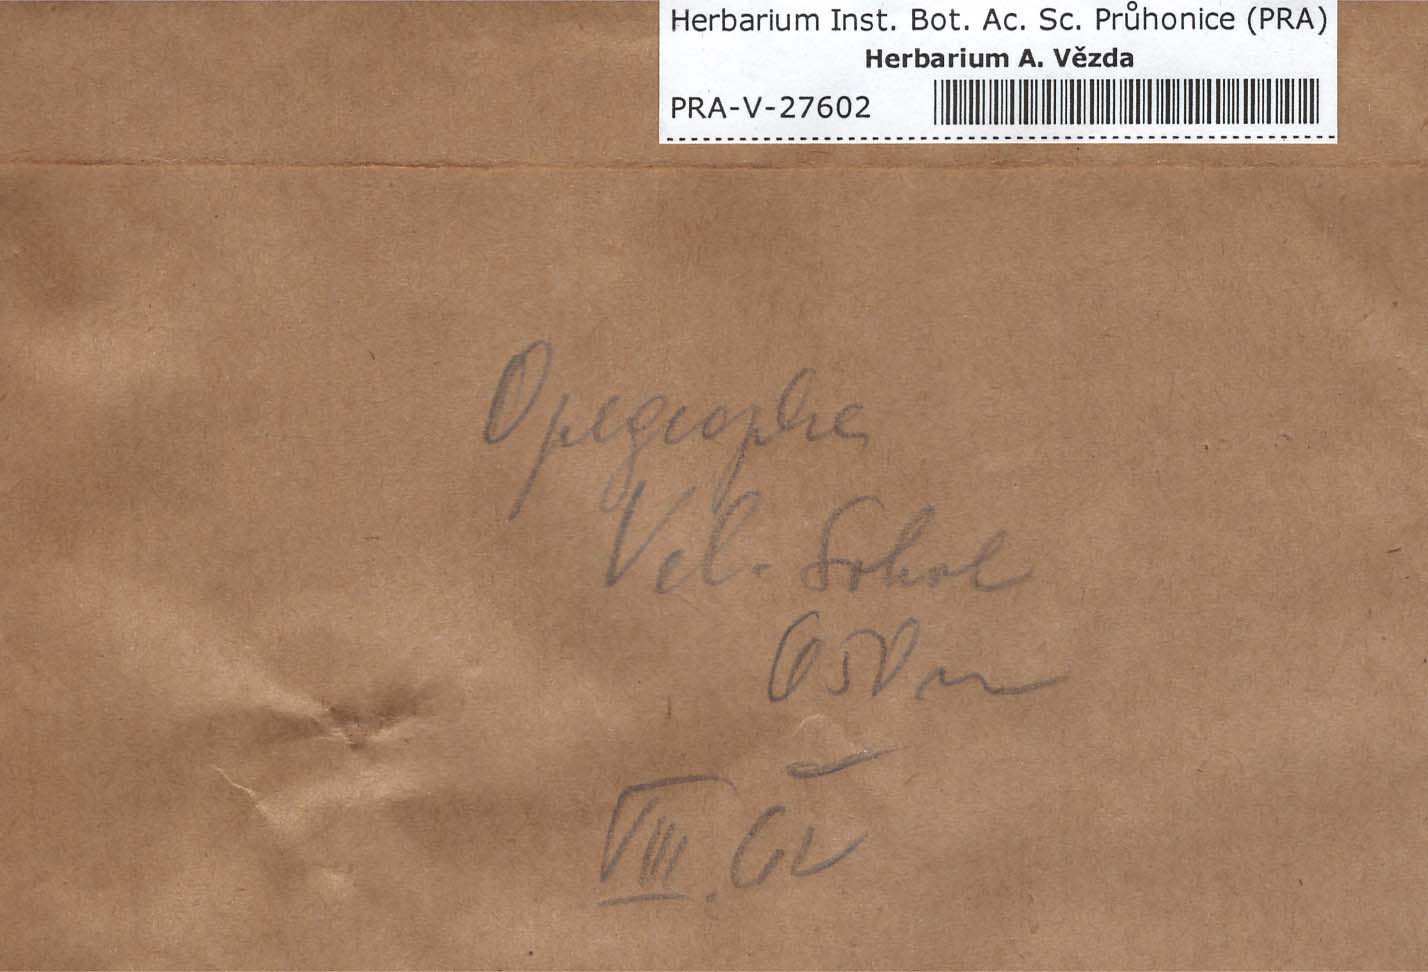 Herbarium Inst. Bot. Ac. Sc. Průhonice (PRA)
Herbarium A. Vězda
PRA-V-27602
Opegrapha
Vel. Sokol
650 m
VIII. 62